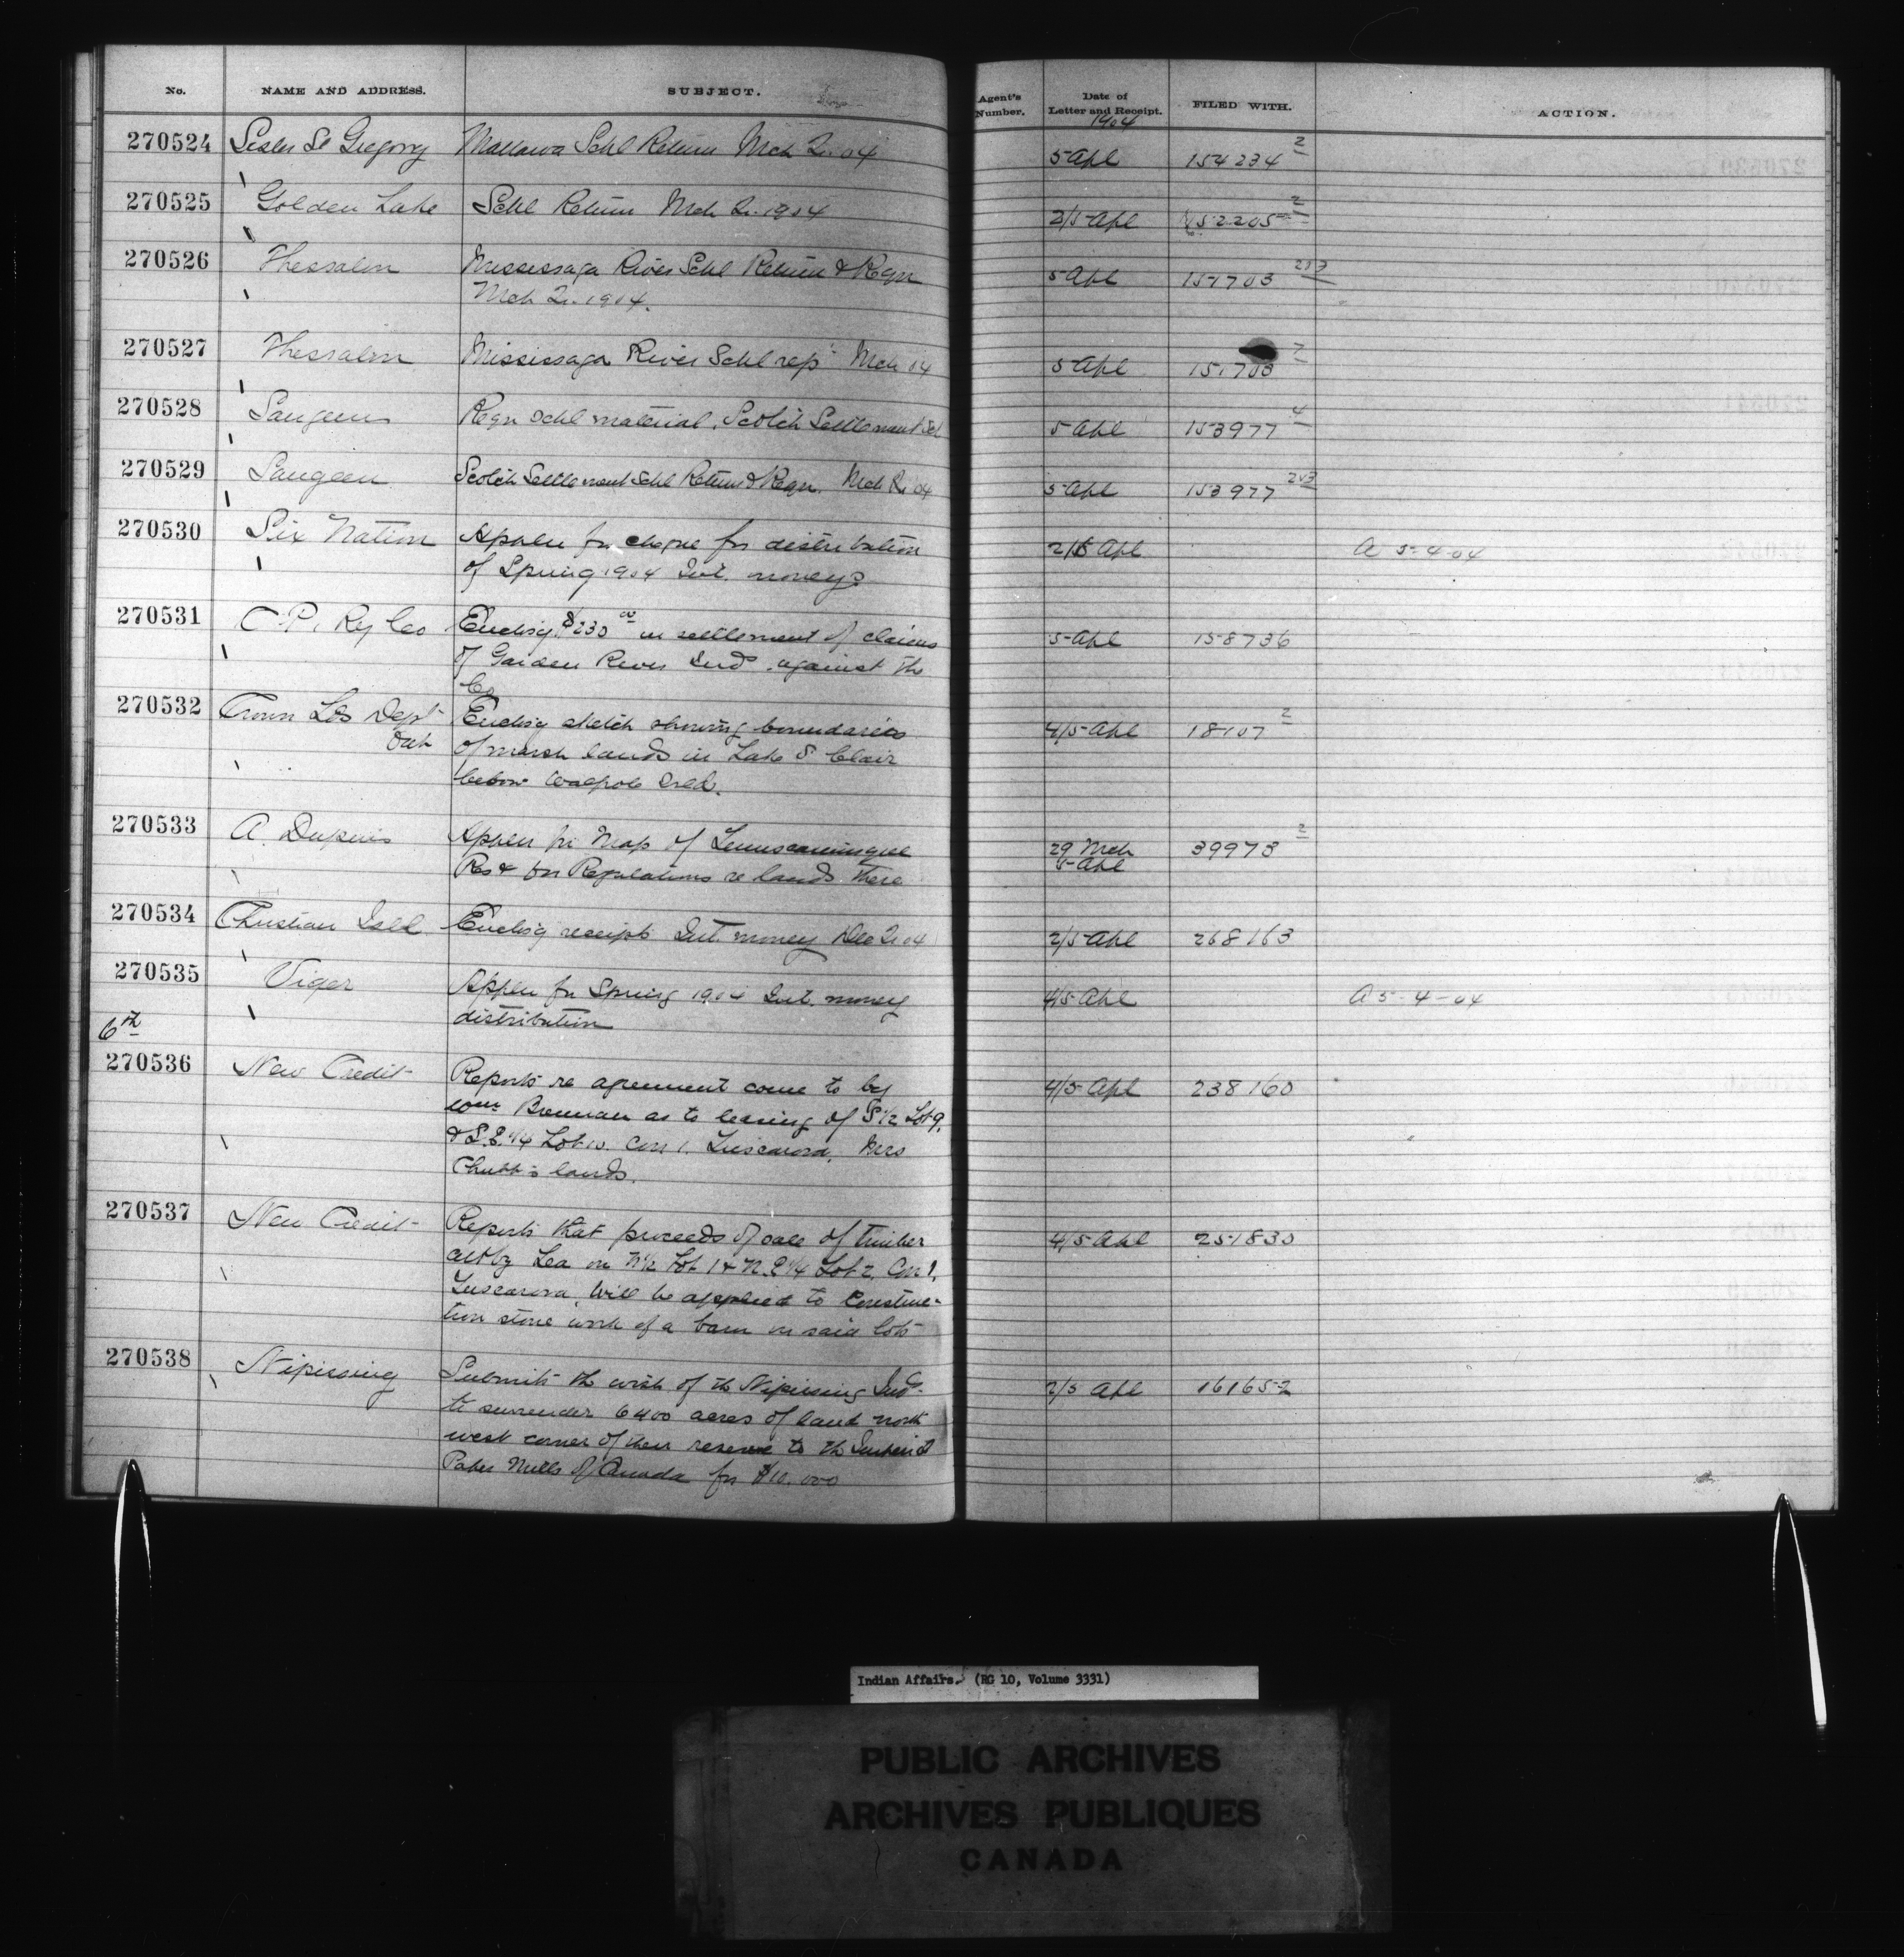 No. NAME AND ADDRESS. SUBJECT. Agent's Number. Date of Letter and Receipt. FILED WITH. ACTION.
1904
270524 Sister St Gregory Mattawa Schl Return Mch Qr. 04 5 Apl 154234 2
270525 Golden Lake Schl Return Mch Qr. 1904 2/5 Apl 152205 2
270526 Thessalon Mississaga River Schl Return & Reqn 5 Apl 151703 2&3
Mch Qr. 1904.
270527 Thessalon Mississaga River Schl rep Mch 04 5 Apl 151703
270528 Saugeen Reqn Schl material, Scotch Settlement Schl 5 Apl 153977 4
270529 Saugeen Scotch Settlement Schl Return & Reqn. Mch Qr 04 5 Apl 153977 2&3
270530 Six Nation Appln for cheque for distribution 2/5 Apl A 5-4-04
of Spring 1904 Int. moneys
270531 C.P. Ry Co Enclosg $230 00 in settlement of claims 5 Apl 158736
of Garden River Inds. against the
Co.
270532 Crown Lds Dept Enclosg sketch showing boundaries 4/5 Apl 18107 2
Ont of marsh lands in Lake St Clair
below Walpole Isld.
270533 A. Dupuis Appln for Map of Temiscamingue 29 Mch 39973 2
Res & for Regulations re lands there 5 Apl
270534 Christian Isld Enclosg receipts Int. money Dec Qr 04 2/5 Apl 268163
270535 Viger Appln for Spring 1904 Int. money 4/5 Apl A 5-4-04
distribution
6th
270536 New Credit Reports re agreement come to by 4/5 Apl 238160
Wm Brennan as to leasing of S 1/2 Lot 9.
& S.E. 1/4 Lot 10. Con 1. Tuscarora, Mrs
Chubb's lands.
270537 New Credit Reports that proceeds of sale of timber 4/5 Apl 251830
cut by Lea on N 1/2 Lot 1 & N.E 1/4 Lot 2, Con 1,
Tuscarora, will be applied to construc-
tion stone work of a barn on said lots
270538 Nipissing Submits the wish of the Nipissing Inds. 2/5 Apl 161652
to surrender 6400 acres of land north
west corner of their reserve to the Imperial
Paper Mills of Canada for $10.000
Indian Affairs. (RG 10, Volume 3331)
PUBLIC ARCHIVES
ARCHIVES PUBLIQUES
CANADA